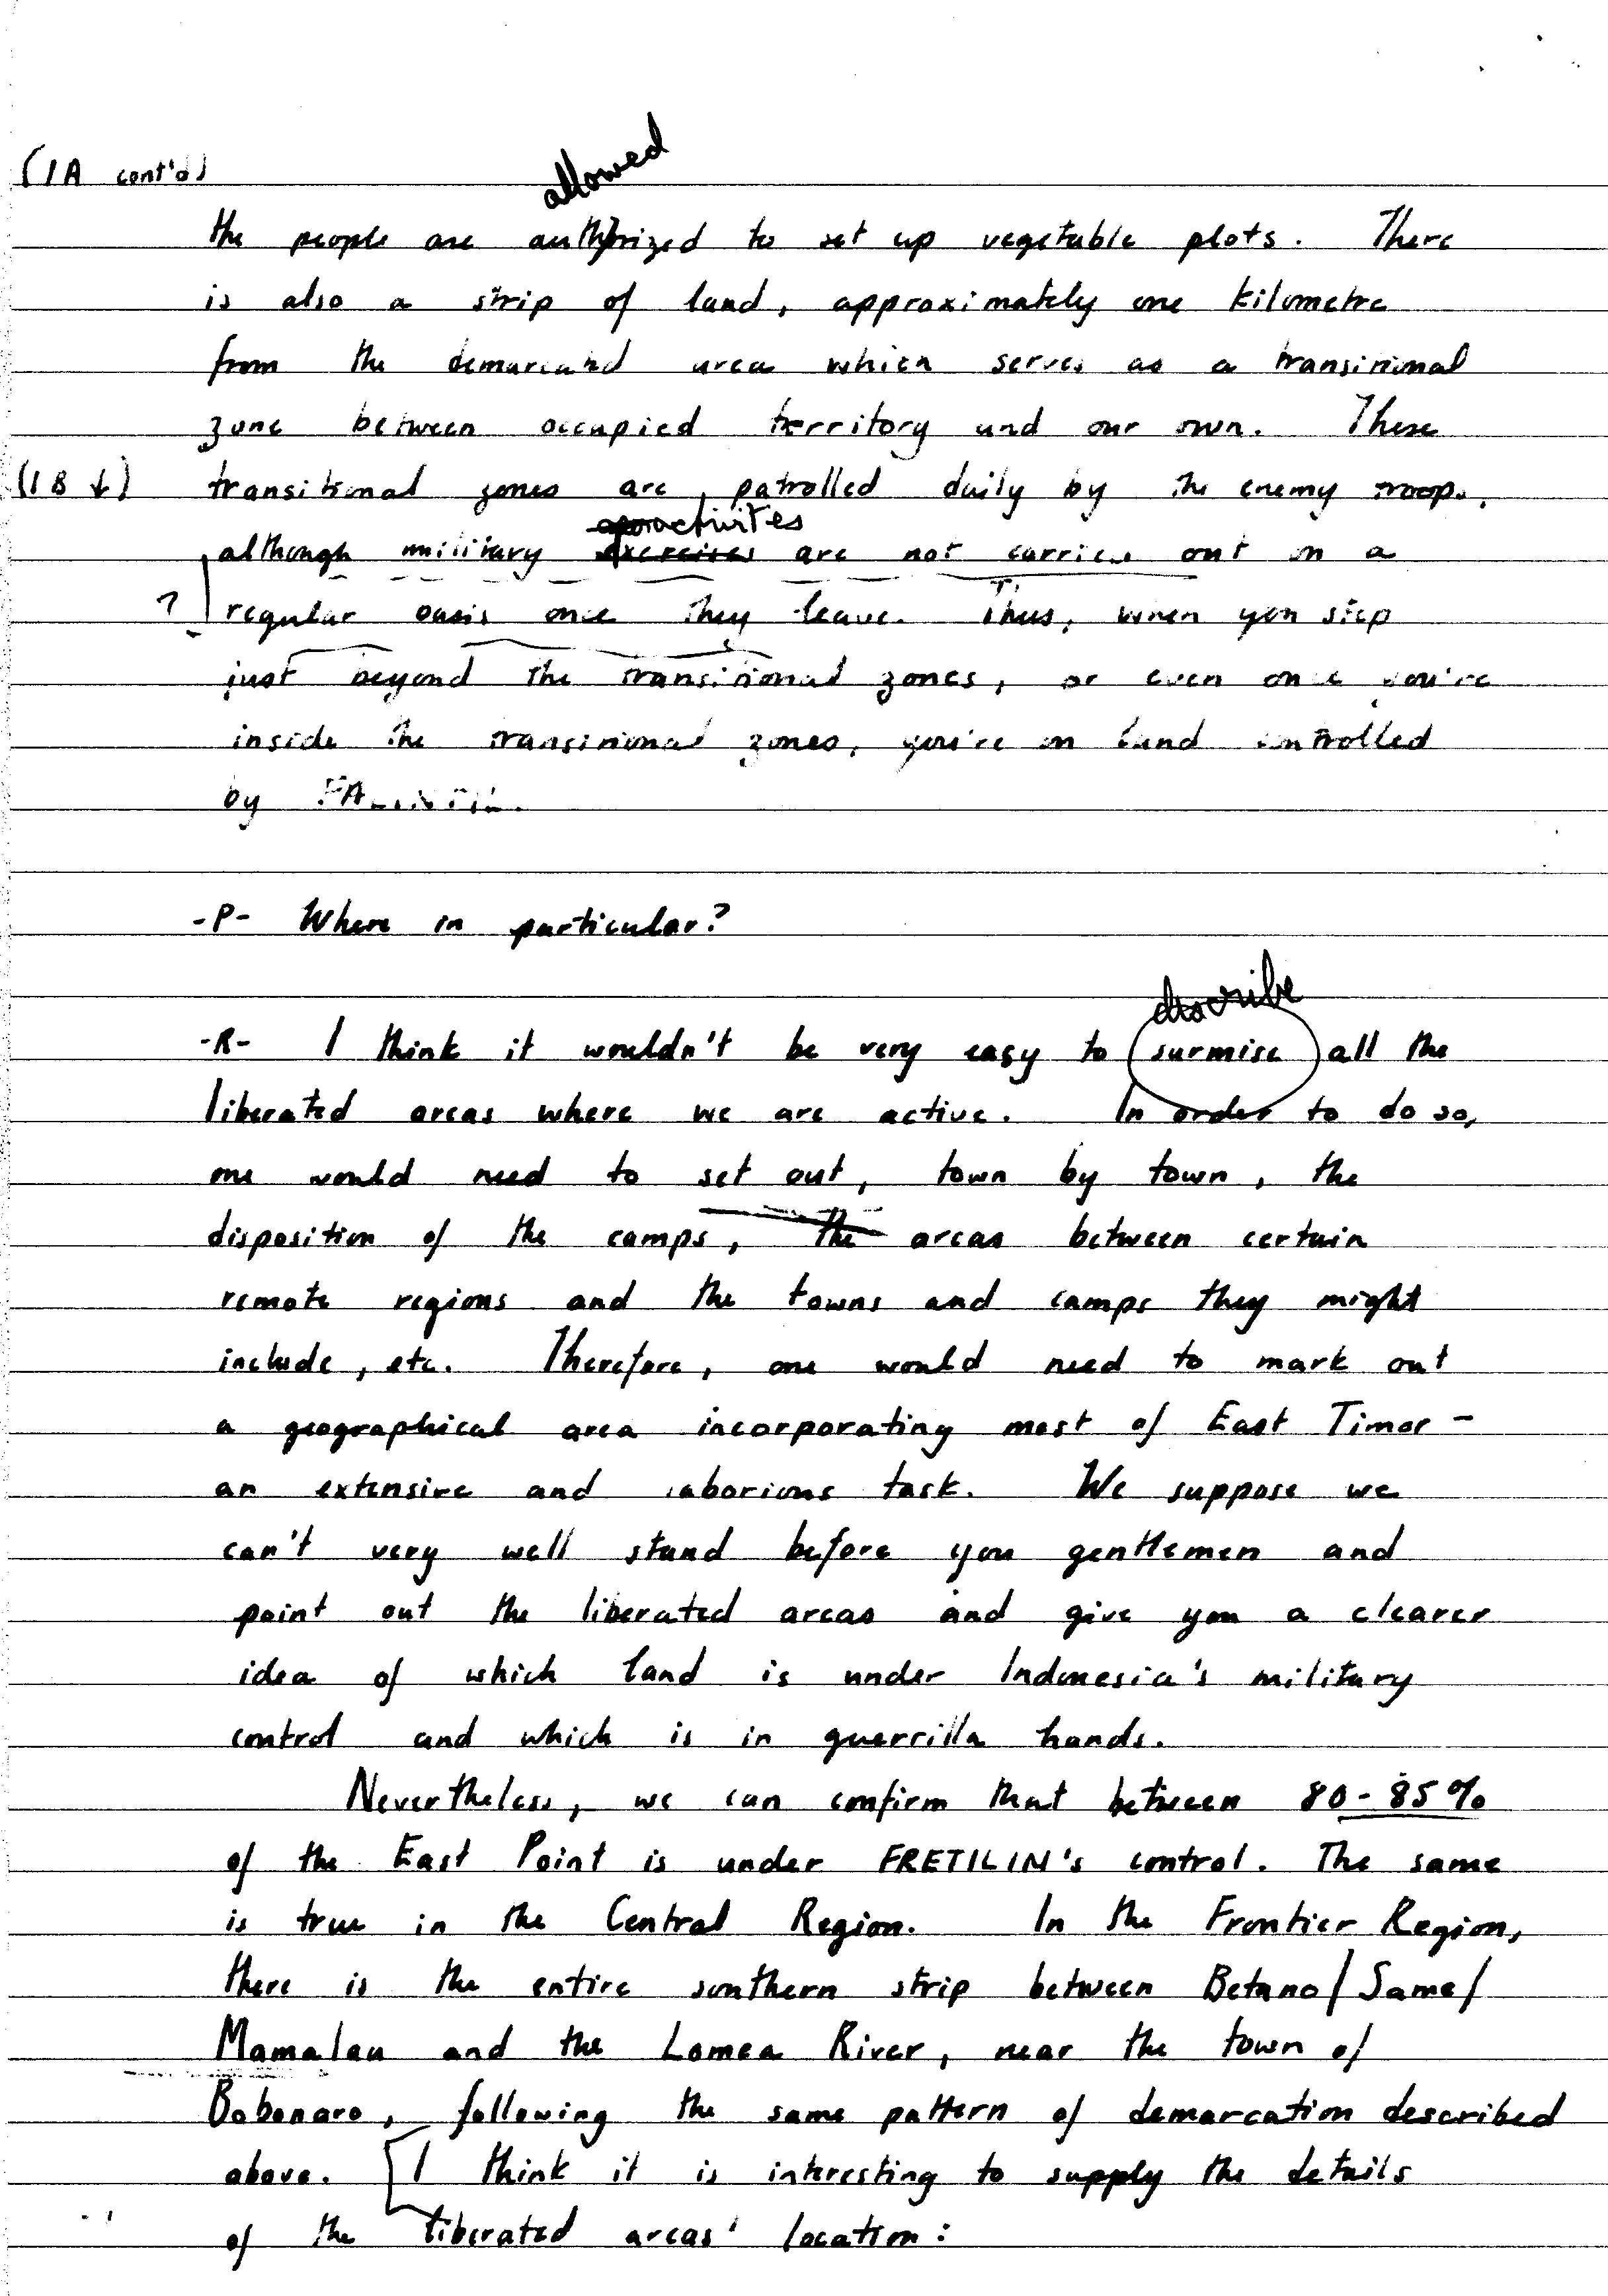 (1A cont'd)
allowed
the people are authorized to set up vegetable plots. There
is also a strip of land, approximately one kilometre
from the demarcated area which serves as a transitional
zone between occupied territory and our own. These
(1B ↓) transitional zones are, patrolled daily by the enemy troops,
activites
although military exercises are not carried out on a
? regular basis once they leave. Thus, when you step
just beyond the transitional zones, or even once you're
inside the transitional zones, you're on land controlled
by FALINTIL.
-P- Where in particular?
describe
-R- I think it wouldn't be very easy to surmise all the
liberated areas where we are active. In order to do so,
one would need to set out, town by town, the
disposition of the camps, the areas between certain
remote regions and the towns and camps they might
include, etc. Therefore, one would need to mark out
a geographical area incorporating most of East Timor -
an extensive and laborious task. We suppose we
can't very well stand before you gentlemen and
point out the liberated areas and give you a clearer
idea of which land is under Indonesia's military
control and which is in guerrilla hands.
Nevertheless, we can confirm that between 80-85%
of the East Point is under FRETILIN's control. The same
is true in the Central Region. In the Frontier Region,
there is the entire southern strip between Betano/Same/
Mamalau and the Lomea River, near the town of
Bobonaro, following the same pattern of demarcation described
above. [I think it is interesting to supply the details
of the liberated areas' location: